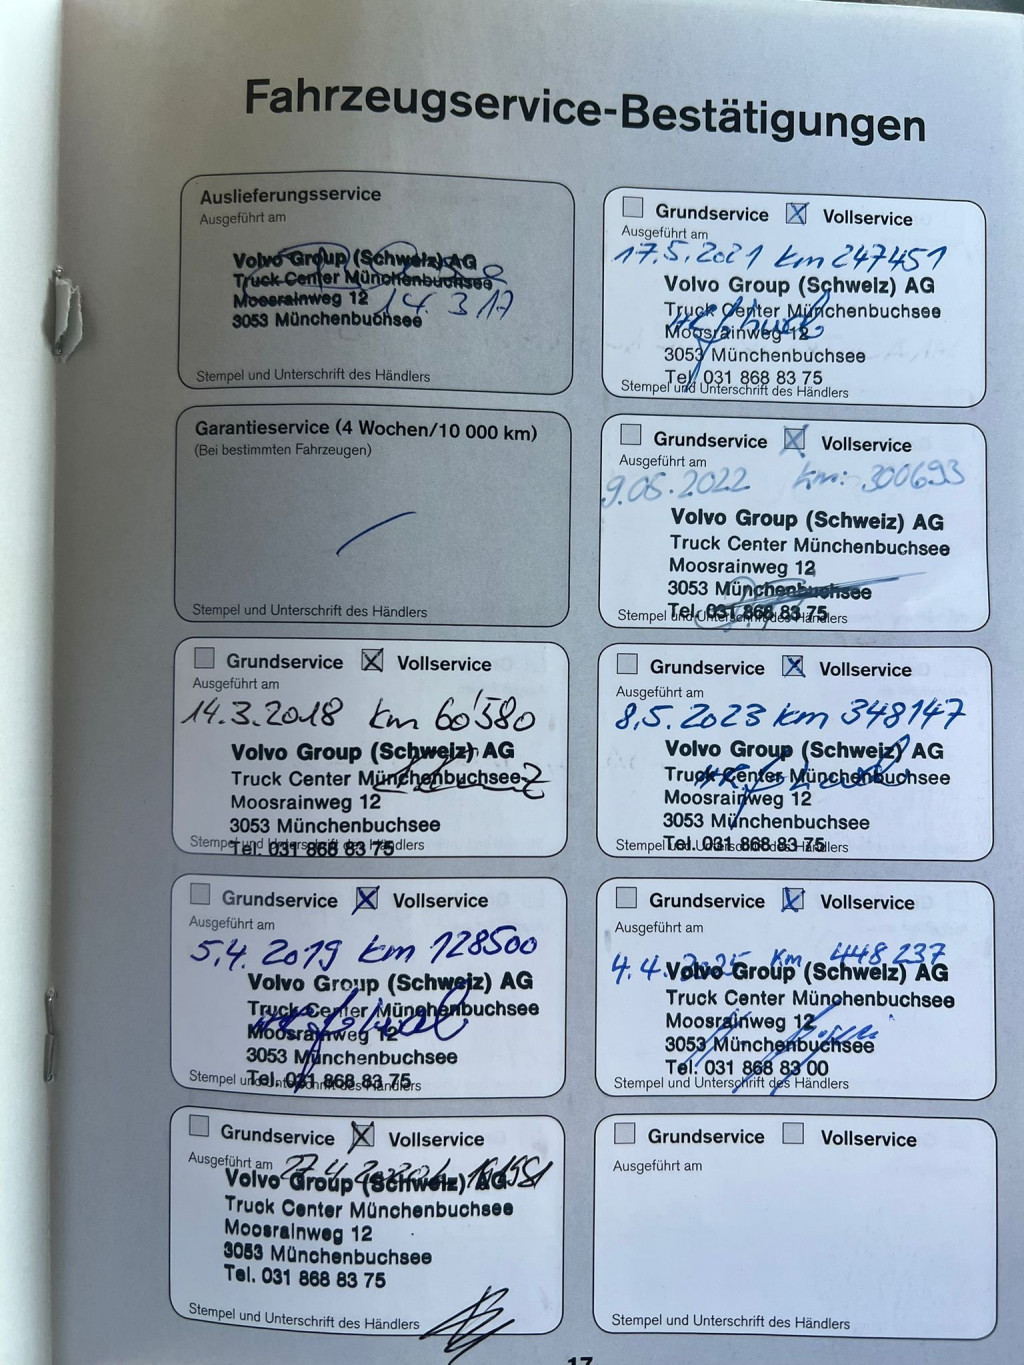 Fahrzeugservice-Bestätigungen
Auslieferungsservice
Ausgeführt am
Volvo Group (Schweiz) AG
Truck Center Münchenbuchsee
Moosrainweg 12
14.3.17
3053 Münchenbuchsee
Stempel und Unterschrift des Händlers
Garantieservice (4 Wochen/10 000 km)
(Bei bestimmten Fahrzeugen)
Stempel und Unterschrift des Händlers
Grundservice Vollservice
Ausgeführt am
14.3.2018 km 60'580
Volvo Group (Schweiz) AG
Truck Center Münchenbuchsee
Moosrainweg 12
3053 Münchenbuchsee
Tel. 031 868 83 75
Stempel und Unterschrift des Händlers
Grundservice Vollservice
Ausgeführt am
5.4.2019 km 128500
Volvo Group (Schweiz) AG
Truck Center Münchenbuchsee
Moosrainweg 12
3053 Münchenbuchsee
Tel. 031 868 83 75
Stempel und Unterschrift des Händlers
Grundservice Vollservice
Ausgeführt am
Volvo Group (Schweiz) AG
Truck Center Münchenbuchsee
Moosrainweg 12
3053 Münchenbuchsee
Tel. 031 868 83 75
Stempel und Unterschrift des Händlers
Grundservice Vollservice
Ausgeführt am
17.5.2021 km 247451
Volvo Group (Schweiz) AG
Truck Center Münchenbuchsee
Moosrainweg 12
3053 Münchenbuchsee
Tel. 031 868 83 75
Stempel und Unterschrift des Händlers
Grundservice Vollservice
Ausgeführt am
9.05.2022 km: 300693
Volvo Group (Schweiz) AG
Truck Center Münchenbuchsee
Moosrainweg 12
3053 Münchenbuchsee
Tel. 031 868 83 75
Stempel und Unterschrift des Händlers
Grundservice Vollservice
Ausgeführt am
8.5.2023 km 348147
Volvo Group (Schweiz) AG
Truck Center Münchenbuchsee
Moosrainweg 12
3053 Münchenbuchsee
Tel. 031 868 83 75
Stempel und Unterschrift des Händlers
Grundservice Vollservice
Ausgeführt am
4.4.2025 Km 448 237
Volvo Group (Schweiz) AG
Truck Center Münchenbuchsee
Moosrainweg 12
3053 Münchenbuchsee
Tel. 031 868 83 00
Stempel und Unterschrift des Händlers
Grundservice Vollservice
Ausgeführt am
Stempel und Unterschrift des Händlers
17